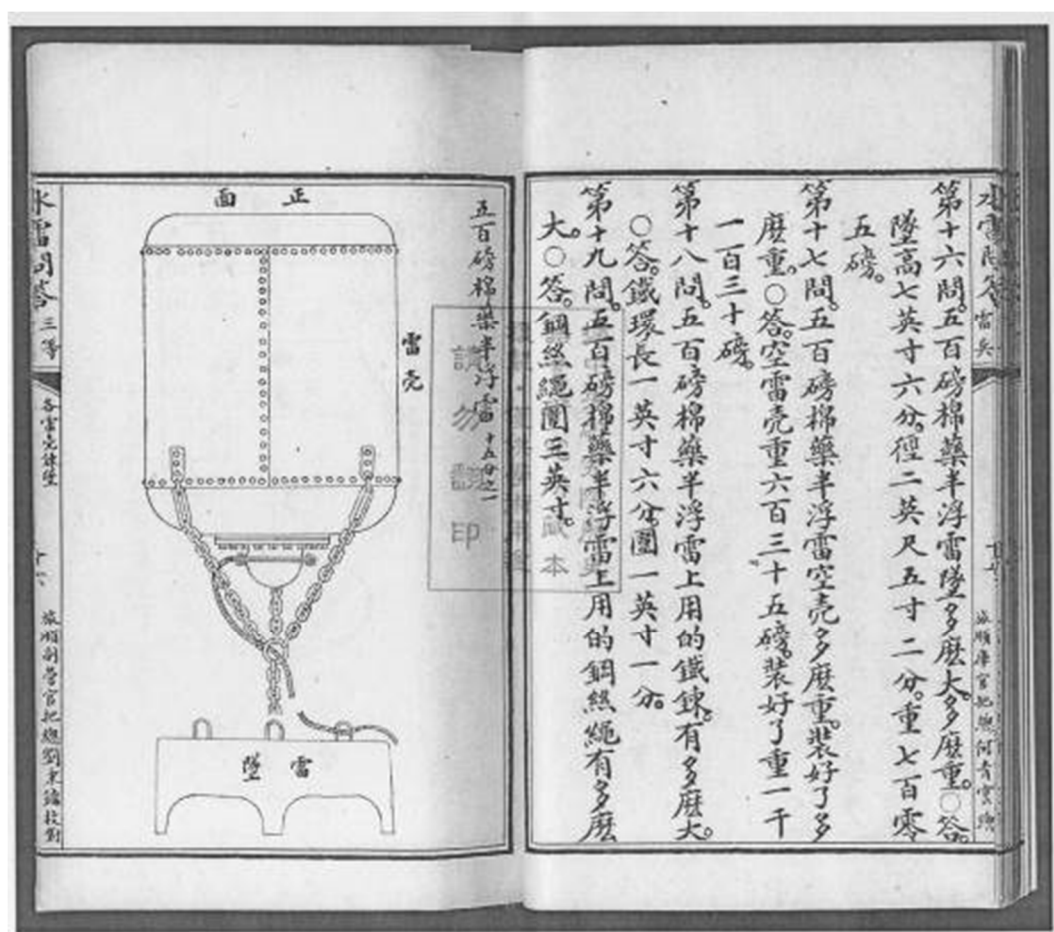 雷兵
第十六問。五百磅棉藥半浮雷墜多麽大。多麽重。○答。
墜高七英寸六分。徑二英尺五寸二分。重七百零
五磅。
第十七問。五百磅棉藥半浮雷空壳多麽重。裝好了多
麽重。○答。空雷壳重六百三十五磅。裝好了重一千
一百三十磅。
第十八問。五百磅棉藥半浮雷上用的鐵鍊。有多麽大。
○答。鐵環長一英寸六分。圍一英寸一分。
第十九問。五百磅棉藥半浮雷上用的鋼絲繩有多麽
大。○答。鋼絲繩圍三英寸。
五百磅棉藥半浮雷 十五分之一
正面
雷壳
雷墜
水雷問答 三等
請勿翻印